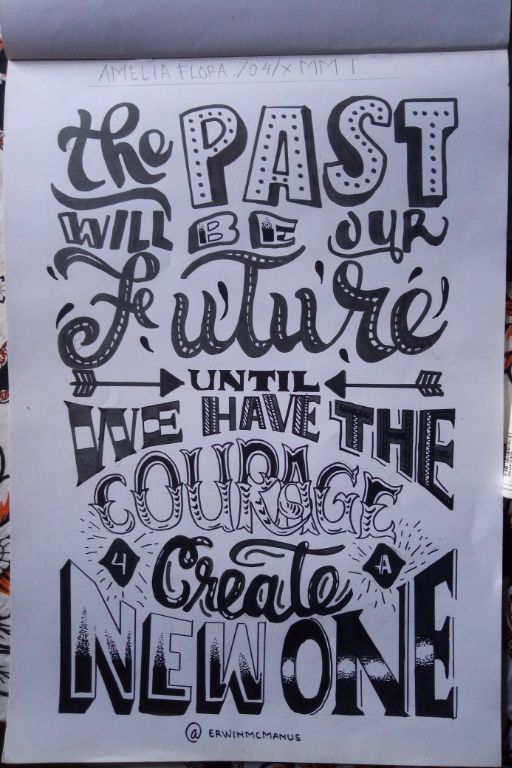 AMELIA FLORA /04/XMM I
the PAST
WILL BE OUR
Future
UNTIL
WE HAVE THE
COURAGE
4 Create A
NEW ONE
@ ERWINMCMANUS